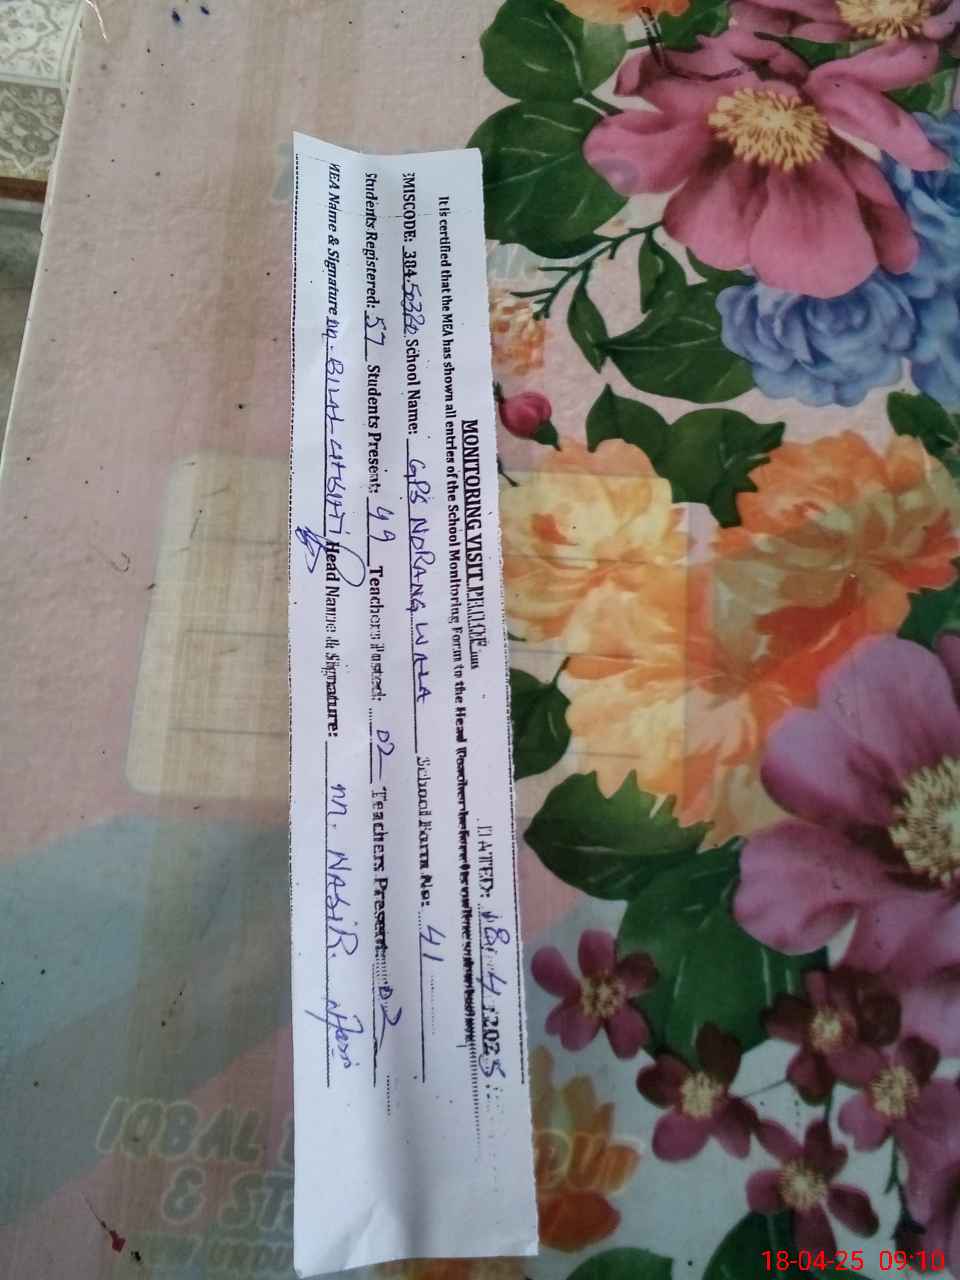 MONITORING VISIT PROOF
DATED: 18-4-2025
It is certified that the MEA has shown all entries of the School Monitoring Form to the Head Teacher before
EMISCODE: 384 School Name: GPS NORANG WALA School Form No: 41
Students Registered: 57 Students Present: 49 Teachers Posted: 02 Teachers Present: 02
MEA Name & Signature BILAL Head Name & Signature: M. NASIR Nasir
IQBAL
&
18-04-25 09:10